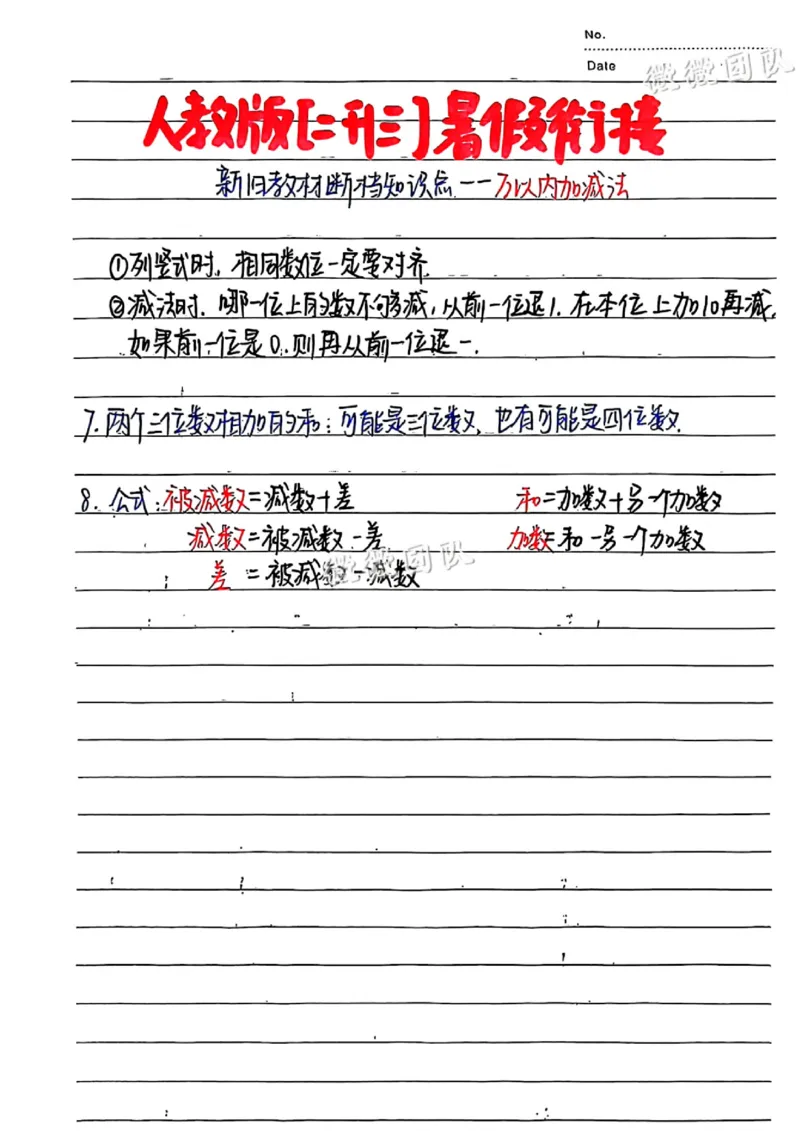 No.
Date
薇薇团队
人教版[二升三]暑假衔接
新旧教材断档知识点——万以内加减法
①列竖式时，相同数位一定要对齐.
②减法时.哪一位上的数不够减，从前一位退1.在本位上加10再减.
如果前一位是0.则再从前一位退一.
7.两个三位数相加的和：可能是三位数，也有可能是四位数.
8.公式：被减数=减数+差 和=加数+另一个加数
减数=被减数-差 加数=和-另一个加数
差=被减数-减数
薇薇团队